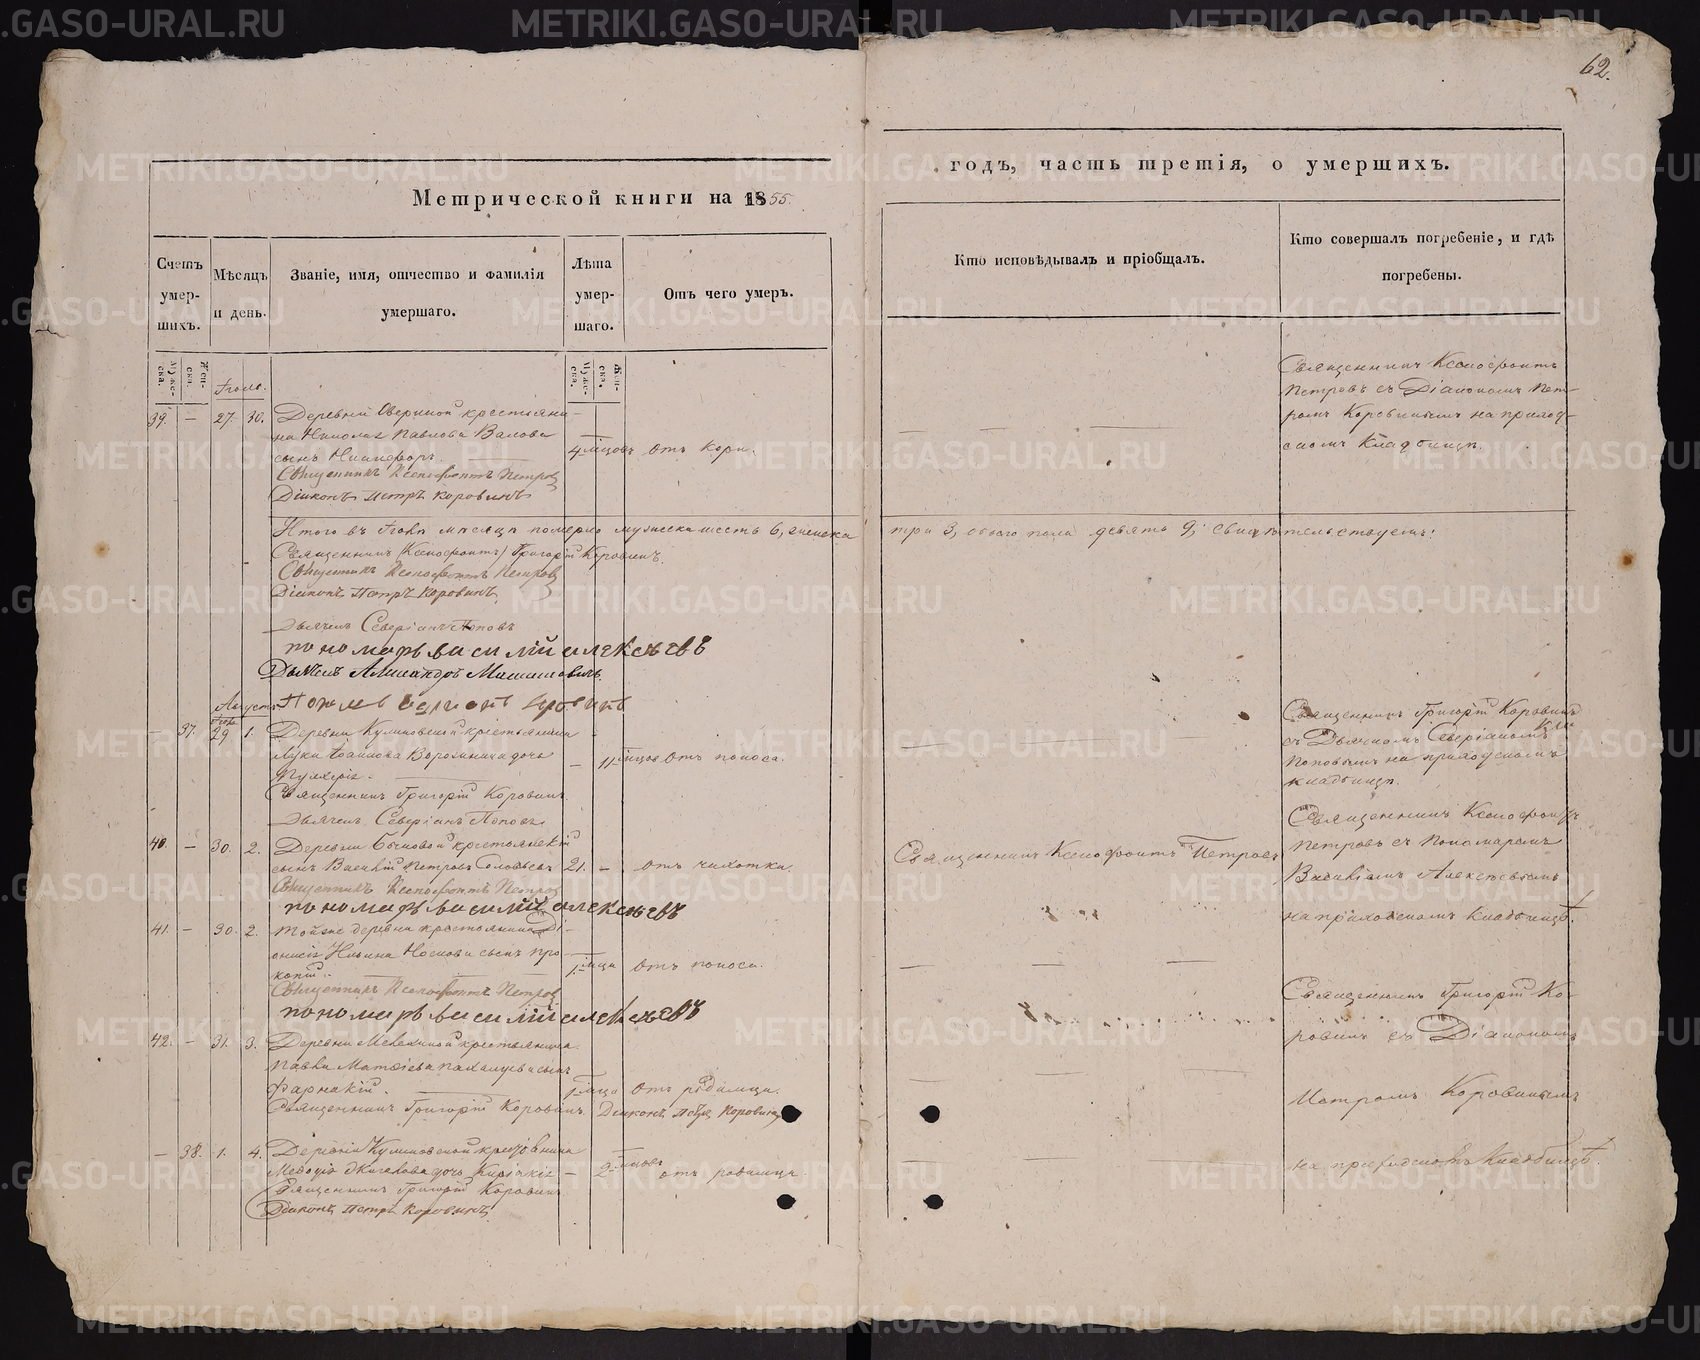 62.
Метрической книги на 1855.
годъ, часть третія, о умершихъ.
Счетъ умер-шихъ.
Мѣсяцъ и день.
Званіе, имя, отчество и фамилія умершаго.
Лѣта умер-шаго.
Отъ чего умеръ.
Кто исповѣдывалъ и пріобщалъ.
Кто совершалъ погребеніе, и гдѣ погребены.
Муже-ска.
Жен-ска.
Муже-ска.
Жен-ска.
Іюль.
39. — 27. 30. Деревни Овериной крестьяни-
на Николая Павлова Валова
сынъ Никифоръ. 4 мцовъ отъ кори.
Священникъ Ксенофонтъ Петровъ
Діаконъ Петръ Коровинъ
Священникъ Ксенофонтъ
Петровъ съ Діакономъ Пет-
ромъ Коровинымъ на приход-
скомъ кладбищѣ.
Итого въ Іюлѣ мѣсяцѣ померло мужеска шесть 6, женска
три 3, обоего пола девять 9; свидѣтельствуемъ:
Священникъ (Ксенофонтъ) Григорій Коровинъ.
Священникъ Ксенофонтъ Петровъ
Діаконъ Петръ Коровинъ
Дьячекъ Северіанъ Поповъ
пономарь василій алексѣевъ
Дьячекъ Александръ
Августъ
Іюля
— 37. 29 1. Деревни Куликовской крестьянина
Луки дочь
Пулхерія. — 11 мцовъ отъ поноса.
Священникъ Григорій Коровинъ
Дьячекъ Северіанъ Поповъ
Священникъ Григорій Коровинъ
съ Дьячкомъ Северіаномъ
Поповымъ на приходскомъ
кладбищѣ.
40. — 30. 2. Деревни Бычковой крестьянскій
сынъ Василій Петровъ Соловьевъ 21. — отъ чихотки.
Священникъ Ксенофонтъ Петровъ
пономарь василій алексѣевъ
Священникъ Ксенофонтъ Петровъ
Священникъ Ксенофонтъ
Петровъ съ Пономаремъ
Василіемъ Алексѣевымъ
на приходскомъ кладбищѣ.
41. — 30. 2. Тойже деревни крестьянина Ді-
онисія Ильина Носкова сынъ Про-
копій. 1 мца отъ поноса.
Священникъ Ксенофонтъ Петровъ
пономарь василій алексѣевъ
42. — 31. 3. Деревни крестьянина
Павла Матѳіева сынъ
1 мца отъ родимца.
Священникъ Григорій Коровинъ. Діаконъ Петръ Коровинъ
Священникъ Григорій Ко-
ровинъ съ Діакономъ
Петромъ Коровинымъ
на приходскомъ кладбищѣ.
— 38. 1. 4. Деревни Куликовской крестьянина
Меѳодія дочь — 2 мцовъ отъ родимца.
Священникъ Григорій Коровинъ
Діаконъ Петръ Коровинъ
METRIKI.GASO-URAL.RU